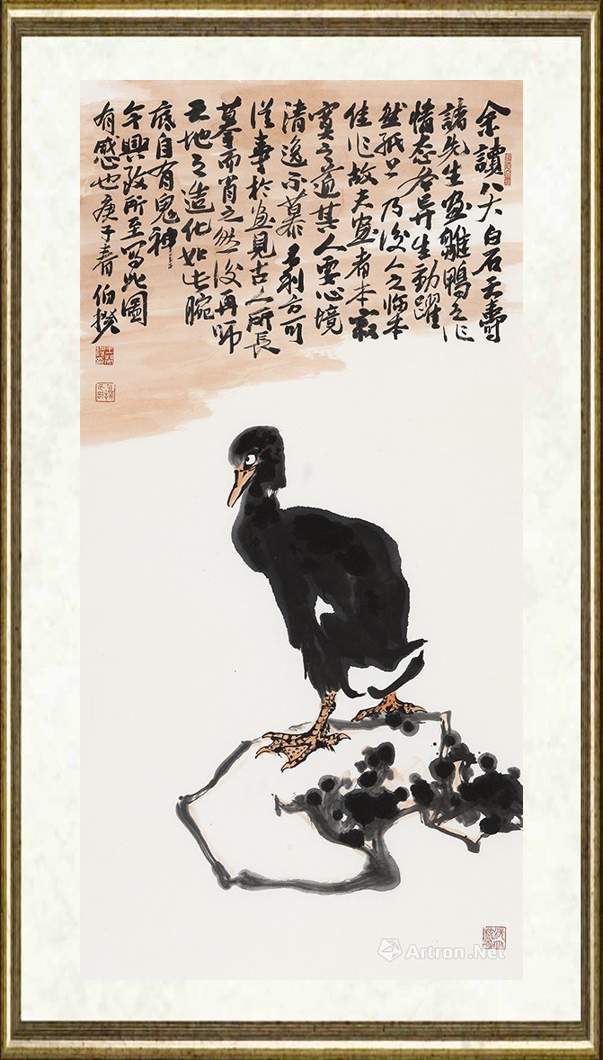 余讀八大白石天壽
諸先生画雛鴨之作
情态各异生動躍
然紙上乃後人之临本
佳作故夫画者本寂
寞之道其人要心境
清逸不慕名利方可
從事於画見古人所長
摹而肖之然後再師
天地之造化如此腕
底自有鬼神
余興致所至寫此圖
有感也庚子春伯揆
Artron.Net